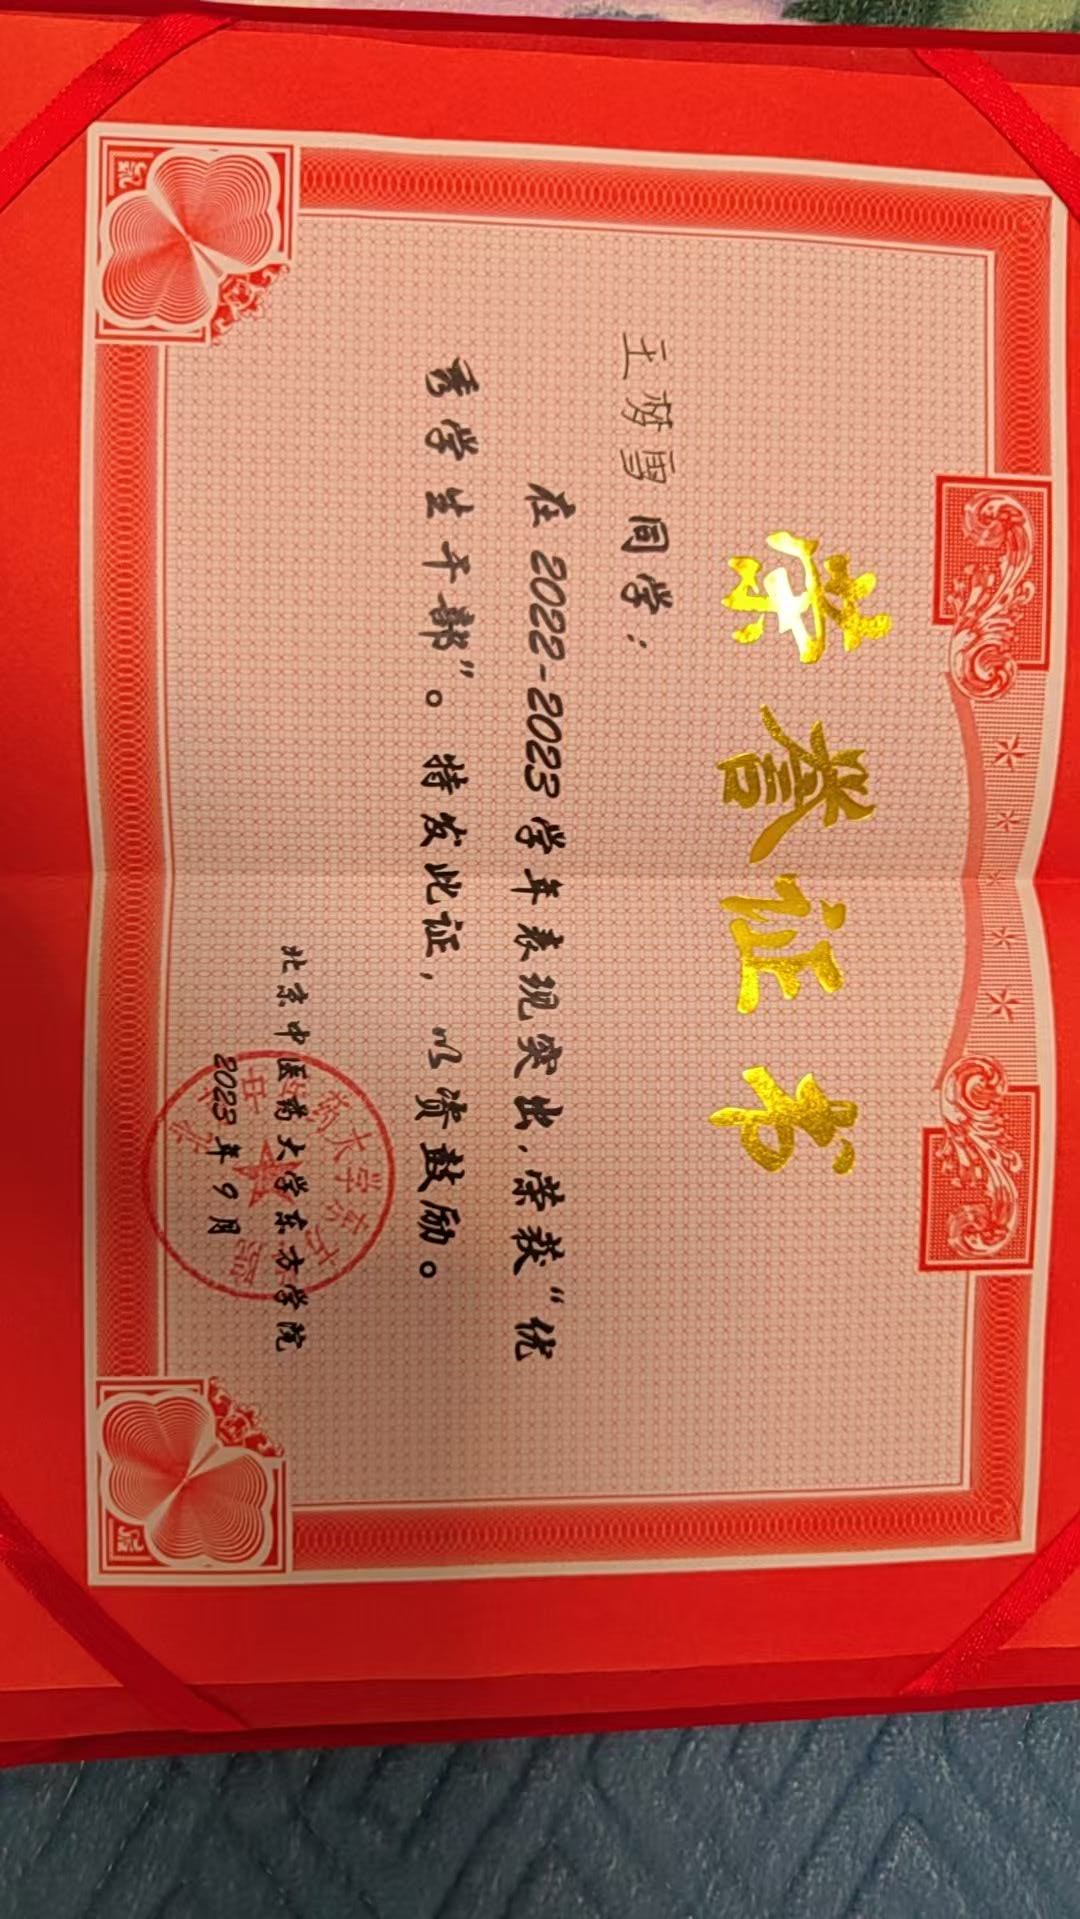 荣誉证书
王梦雪同学：
在2022-2023学年表现突出，荣获“优
秀学生干部”。特发此证，以资鼓励。
北京中医药大学东方学院
2023年9月